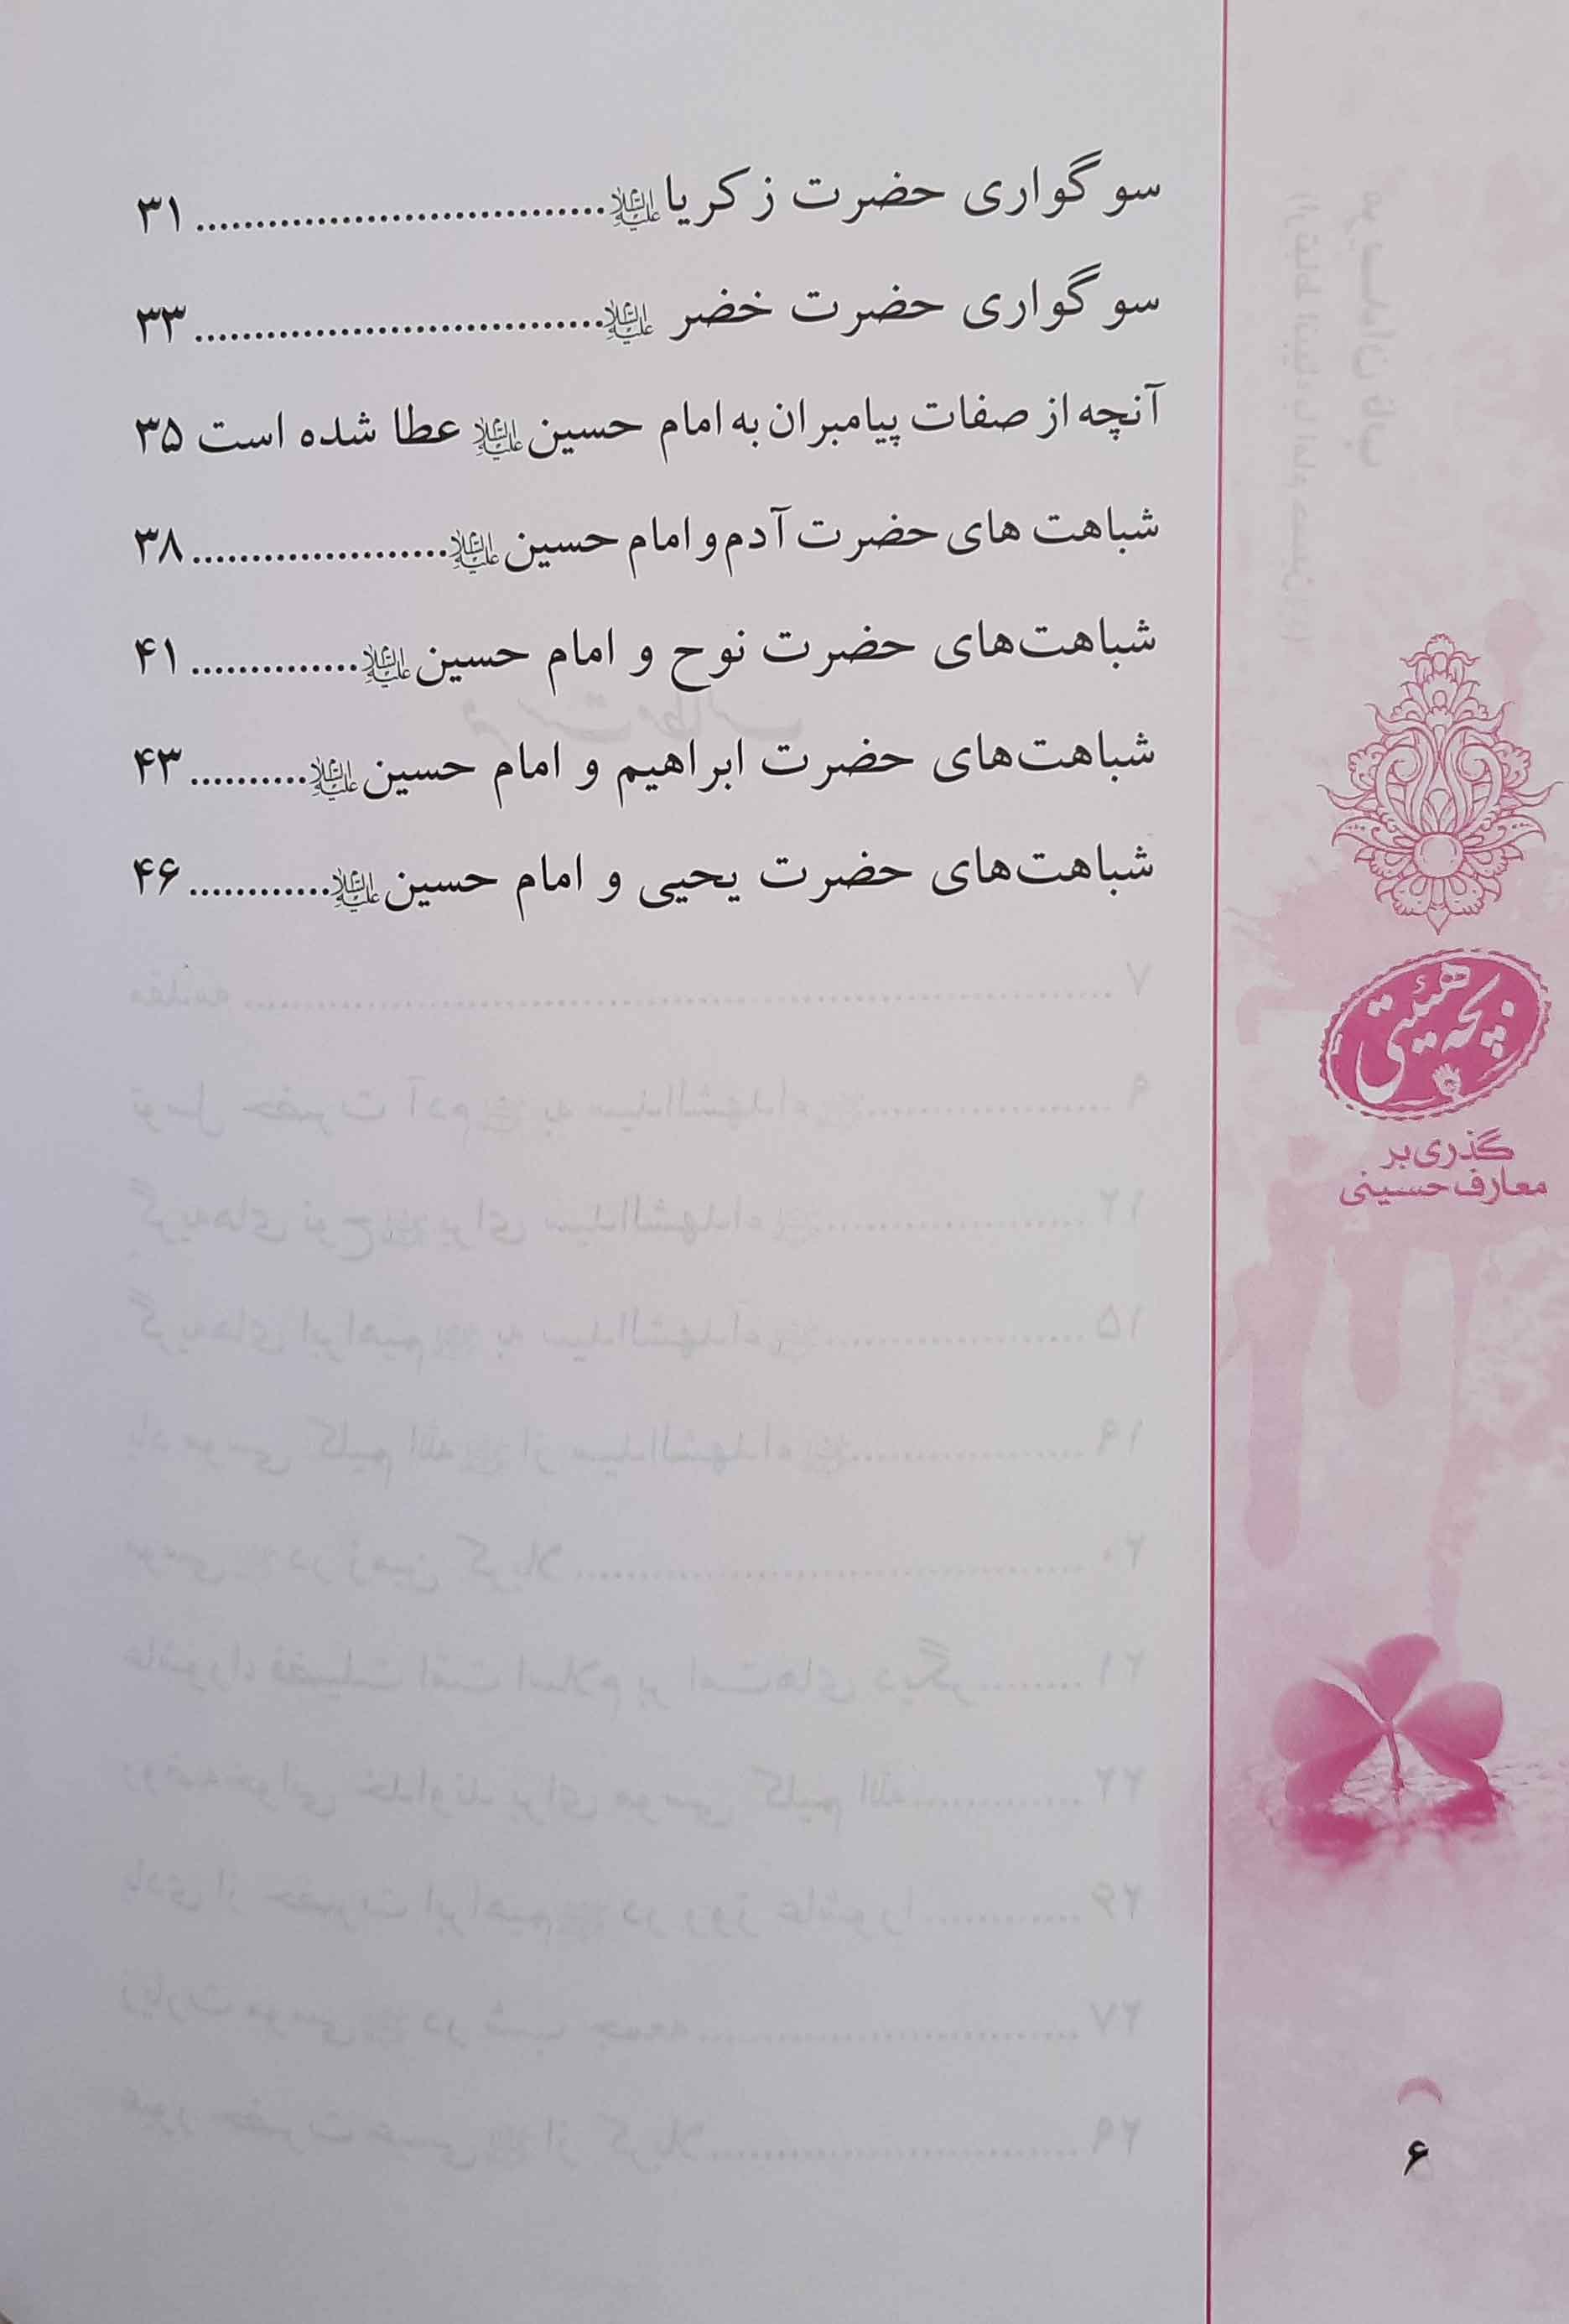 سوگواری حضرت زکریا علیه‌السلام .................................. ۳۱
سوگواری حضرت خضر علیه‌السلام .................................. ۳۳
آنچه از صفات پیامبران به امام حسین علیه‌السلام عطا شده است ۳۵
شباهت های حضرت آدم و امام حسین علیه‌السلام ..................... ۳۸
شباهت‌های حضرت نوح و امام حسین علیه‌السلام .............. ۴۱
شباهت‌های حضرت ابراهیم و امام حسین علیه‌السلام .......... ۴۳
شباهت‌های حضرت یحیی و امام حسین علیه‌السلام ............ ۴۶
بچه هیئتی
گذری بر
معارف حسینی
۶